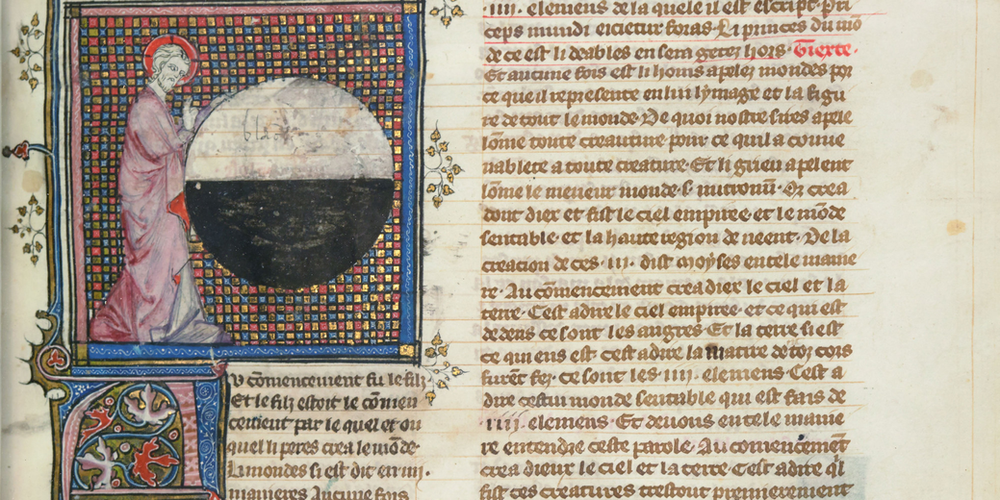 Au cōmencement fu le filz
Et le filz estoit le cōmen
cement par le quel et ou
quel li peres crea le mōde·
Li mondes si est dit en ·iiii·
manieres Aucune fois
·iiii· elemens de la quele il est escript pri
ceps mundi eicietur foras Li princes du mō
de ce est li deables en sera getez hors· Tierce·
Et aucune fois est li homs apelez mondes por
ce que il represente en lui lymage et la figu
re de tout le monde· De quoi nostre sires apele
lōme toute creature pour ce quil a conue
nablete a toute creature· Et li grieu apelent
lōme le meneur monde·
dont diex et fist le ciel empiree· et le mōde
sensable· et la haute region de neent· De la
creacion de ces ·iii· dist moyses en tele manie
re· Au cōmencement crea diex le ciel et la
terre· Cest a dire le ciel empiree· et ce qui est
dedens ce sont les angres· Et la terre si est
ce qui ens est· cest a dire la matire de toz cors
furēt fez· ce sont les ·iiii· elemens· Cest a
dire cestui monde sensable qui est fais de
·iiii· elemens· Et devons en tele manie
re entendre ceste parole· Au comencemēt
crea dieux le ciel et la terre· Cest a dire ql
fist ces creatures trestout premierement